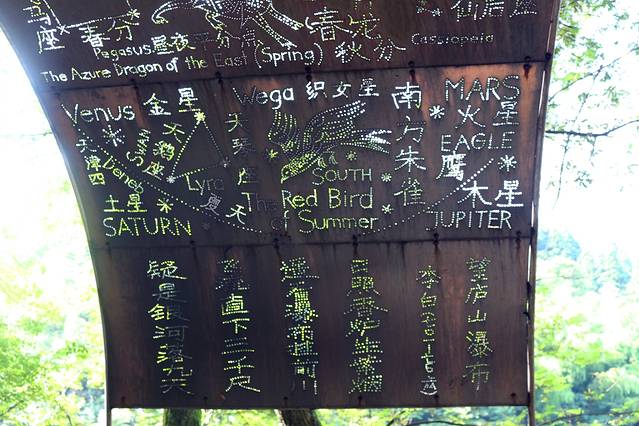 座
春分
Pegasus
昼夜平分
仙后座
Cassiopeia
秋分
The Azure Dragon of the East (Spring)
Venus 金星
Wega 织女星
南方朱雀
MARS
火星
天津四
Deneb
天鹅座
天琴座
Lyra
EAGLE
鹰
SOUTH
The Red Bird
of Summer
夏天
土星
SATURN
木星
JUPITER
望庐山瀑布
李白
日照香炉生紫烟
遥看瀑布挂前川
直下三千尺
疑是銀河落九天